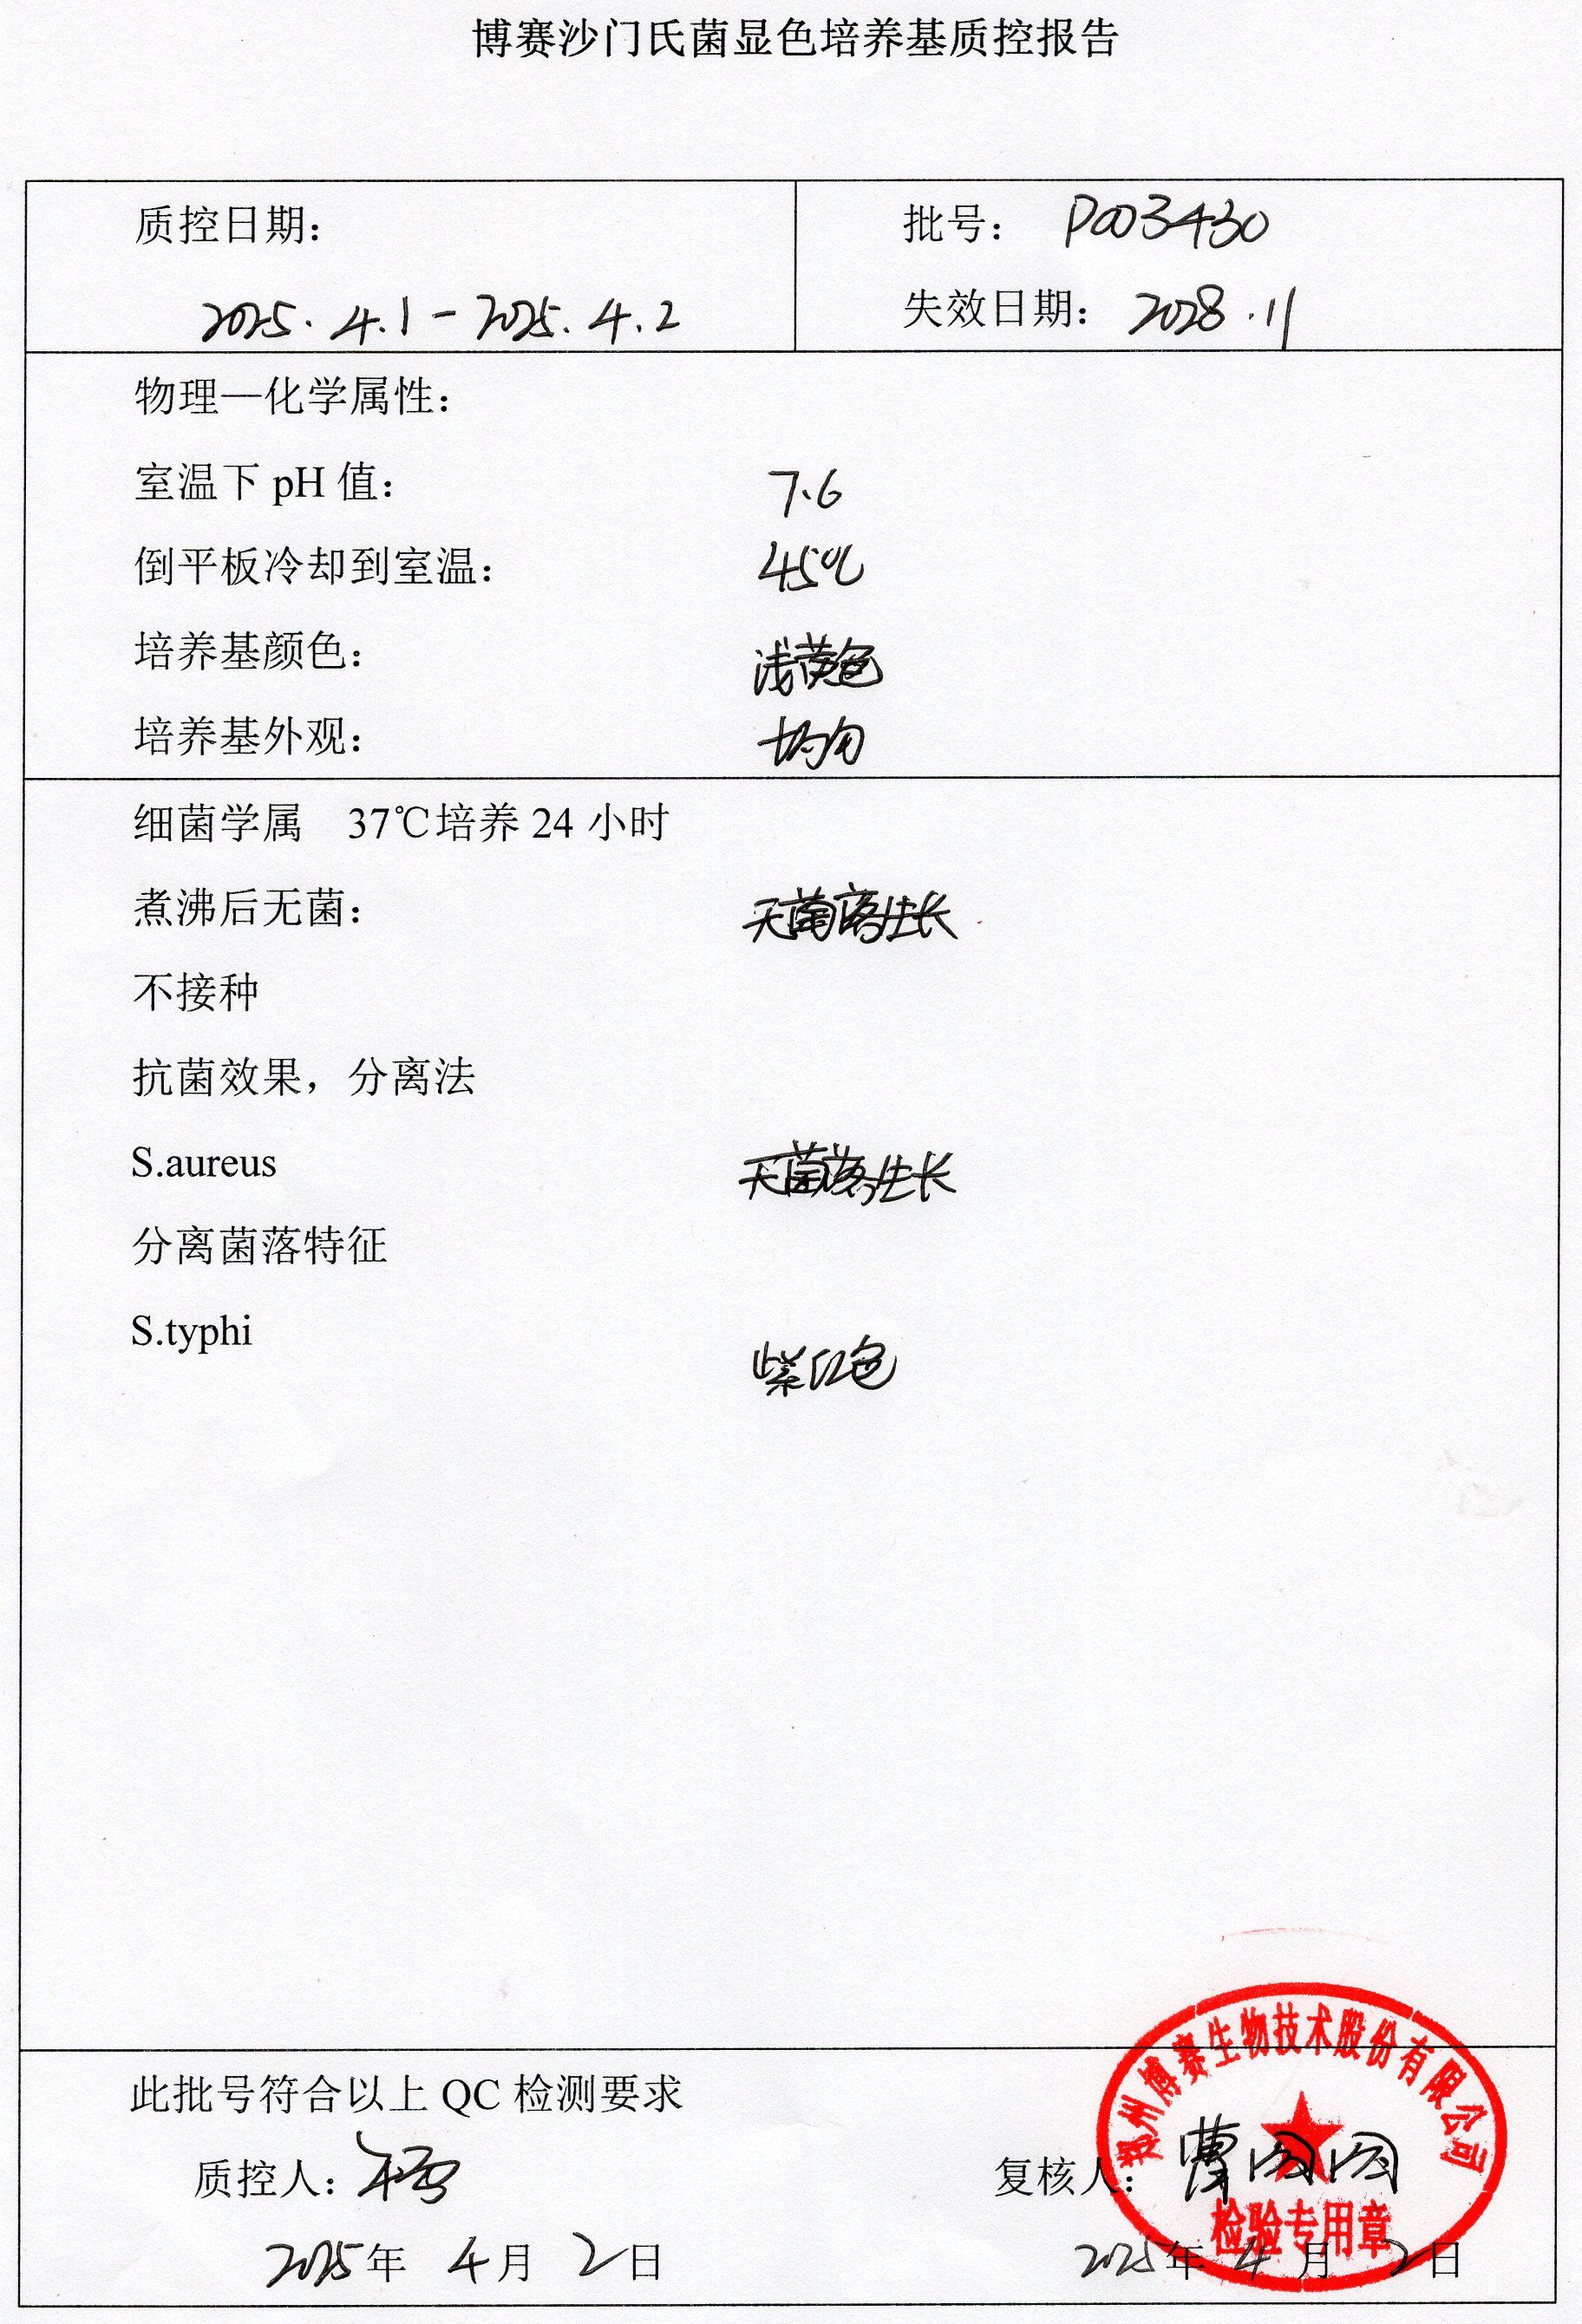 博赛沙门氏菌显色培养基质控报告
质控日期：
批号： P003430
2025.4.1-2025.4.2
失效日期： 2028.11
物理—化学属性：
室温下 pH 值： 7.6
倒平板冷却到室温： 45℃
培养基颜色： 浅黄色
培养基外观： 均匀
细菌学属 37℃培养 24 小时
煮沸后无菌： 无菌落生长
不接种
抗菌效果，分离法
S.aureus 无菌落生长
分离菌落特征
S.typhi
紫红色
郑州博赛生物技术股份有限公司
此批号符合以上 QC 检测要求
质控人：
复核人： 曹园园
检验专用章
2025年 4月 2日
2025年 4月 2日